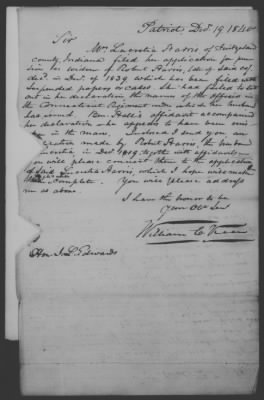 Patriot Decr 19 1840
Sir
Mrs Lucretia Harris of Switzerland
county, Indiana filed her application for pen-
sion as widow of Robert Harris, late of said co.
decd in Decr of 1839 which has been filed with
suspended papers because she had failed to set
out in her declaration the names of the officers in
the Connecticut Regiment under which her husband
has served. Ben. Hall's affidavit accompanied
her declaration who appears to have been
in the man. Enclosed I send you an
made by Robert Harris, the husband
Lucretia, in Decr 1819, together with affidavits
you will please connect them to the application
of said Lucretia Harris, which I hope will make
complete. You will please address
me as above.
I have the honor to be
Your Obt Sert
William C.
Hon. J. L. Edwards